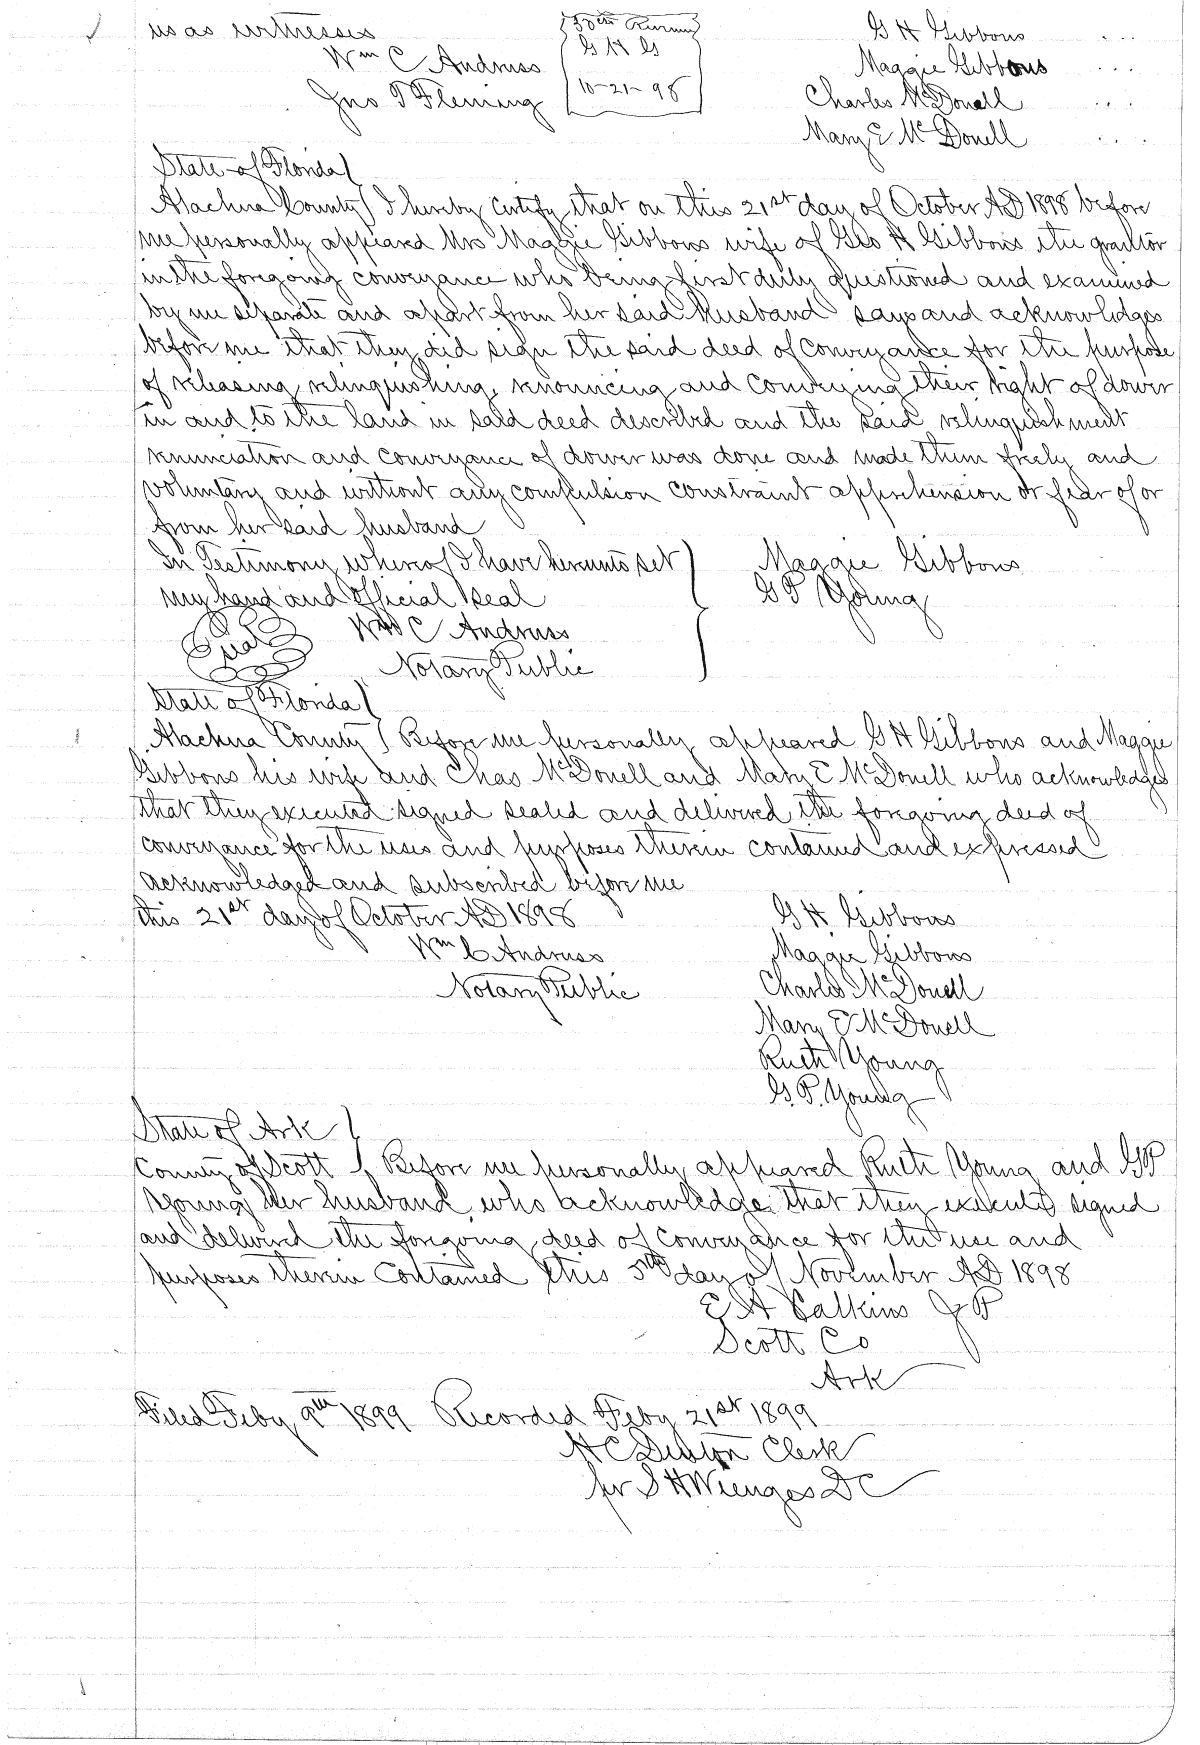 us as witnesses
Wm C Andruss
Jno T Fleming
50cts Revenue
G H G
10-21-98
G H Gibbons
Maggie Gibbons
Charles McDonell
Mary E McDonell
State of Florida
Alachua County I hereby certify that on this 21st day of October AD 1898 before
me personally appeared Mrs Maggie Gibbons wife of Geo H Gibbons the grantor
in the foregoing conveyance who being first duly questioned and examined
by me separate and apart from her said Husband says and acknowledges
before me that they did sign the said deed of conveyance for the purpose
of releasing, relinquishing, renouncing and conveying their right of dower
in and to the land in said deed described and the said relinquishment
renunciation and conveyance of dower was done and made them freely and
voluntary and without any compulsion constraint apprehension or fear of or
from her said husband
In Testimony whereof I have hereunto set
my hand and official seal
Seal
Wm C Andruss
Notary Public
Maggie Gibbons
G P Young
State of Florida
Alachua County Before me personally appeared G H Gibbons and Maggie
Gibbons his wife and Chas McDonell and Mary E McDonell who acknowledges
that they executed signed sealed and delivered the foregoing deed of
conveyance for the uses and purposes therein contained and expressed
Acknowledged and subscribed before me
this 21st day of October AD 1898
Wm C Andruss
Notary Public
G H Gibbons
Maggie Gibbons
Charles McDonell
Mary E McDonell
Ruth Young
G. P. Young
State of Ark
County of Scott Before me personally appeared Ruth Young and GP
Young her husband who acknowledge that they executed signed
and delivered the foregoing deed of conveyance for the use and
purposes therein contained this 5th day of November AD 1898
E A Calkins J P
Scott Co
Ark
Filed Feby 9th 1899 Recorded Feby 21st 1899
H C Denton Clerk
per S H Wienges DC